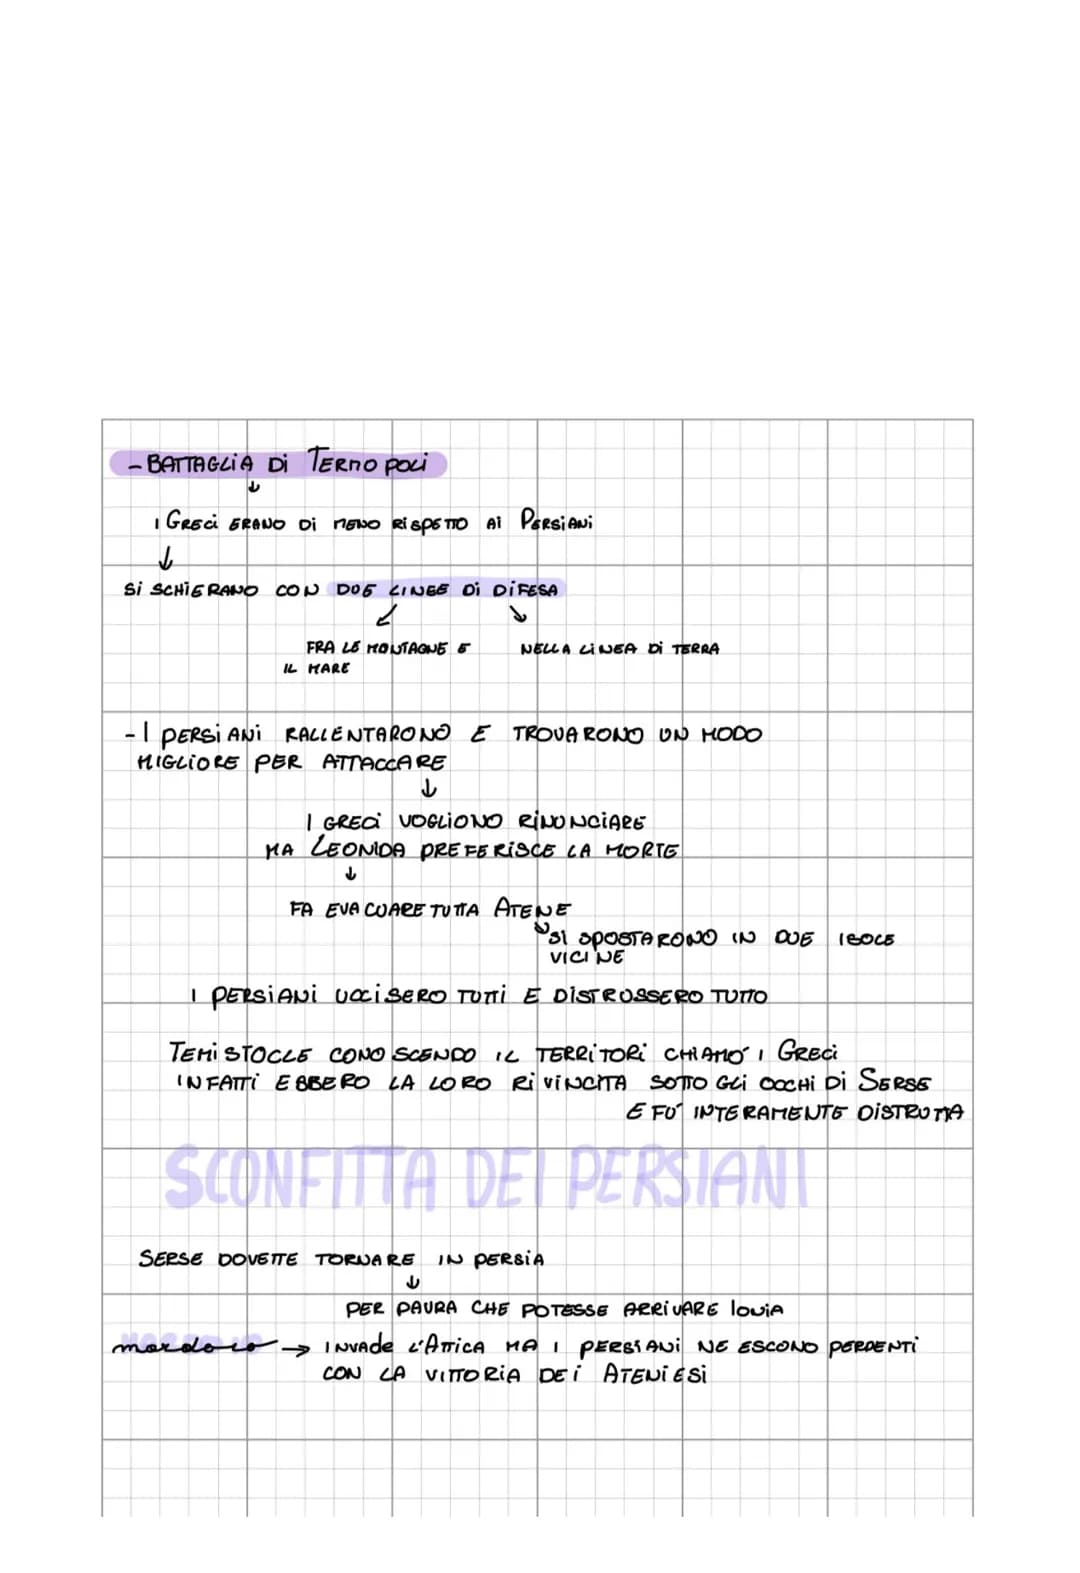 - BATTAGLIA DI TERMOPOLI
↓
I GRECI ERANO DI MENO RISPETTO AI PERSIANI
↓
SI SCHIERANO CON DUE LINEE DI DIFESA
↙ ↘
FRA LE MONTAGNE E NELLA LINEA DI TERRA
IL MARE
- I PERSIANI RALLENTARONO E TROVARONO UN MODO
MIGLIORE PER ATTACCARE
↓
I GRECI VOGLIONO RINUNCIARE
MA LEONIDA PREFERISCE LA MORTE
↓
FA EVACUARE TUTTA ATENE
↘ SI SPOSTARONO IN DUE ISOLE
VICINE
I PERSIANI UCCISERO TUTTI E DISTRUSSERO TUTTO
TEMISTOCLE CONOSCENDO IL TERRITORI CHIAMO' I GRECI
INFATTI EBBERO LA LORO RIVINCITA SOTTO GLI OCCHI DI SERSE
E FU' INTERAMENTE DISTRUTTA
SCONFITTA DEI PERSIANI
SERSE DOVETTE TORNARE IN PERSIA
↓
PER PAURA CHE POTESSE ARRIVARE IONIA
→ INVADE L'ATTICA MA I PERSIANI NE ESCONO PERDENTI
CON LA VITTORIA DEI ATENIESI